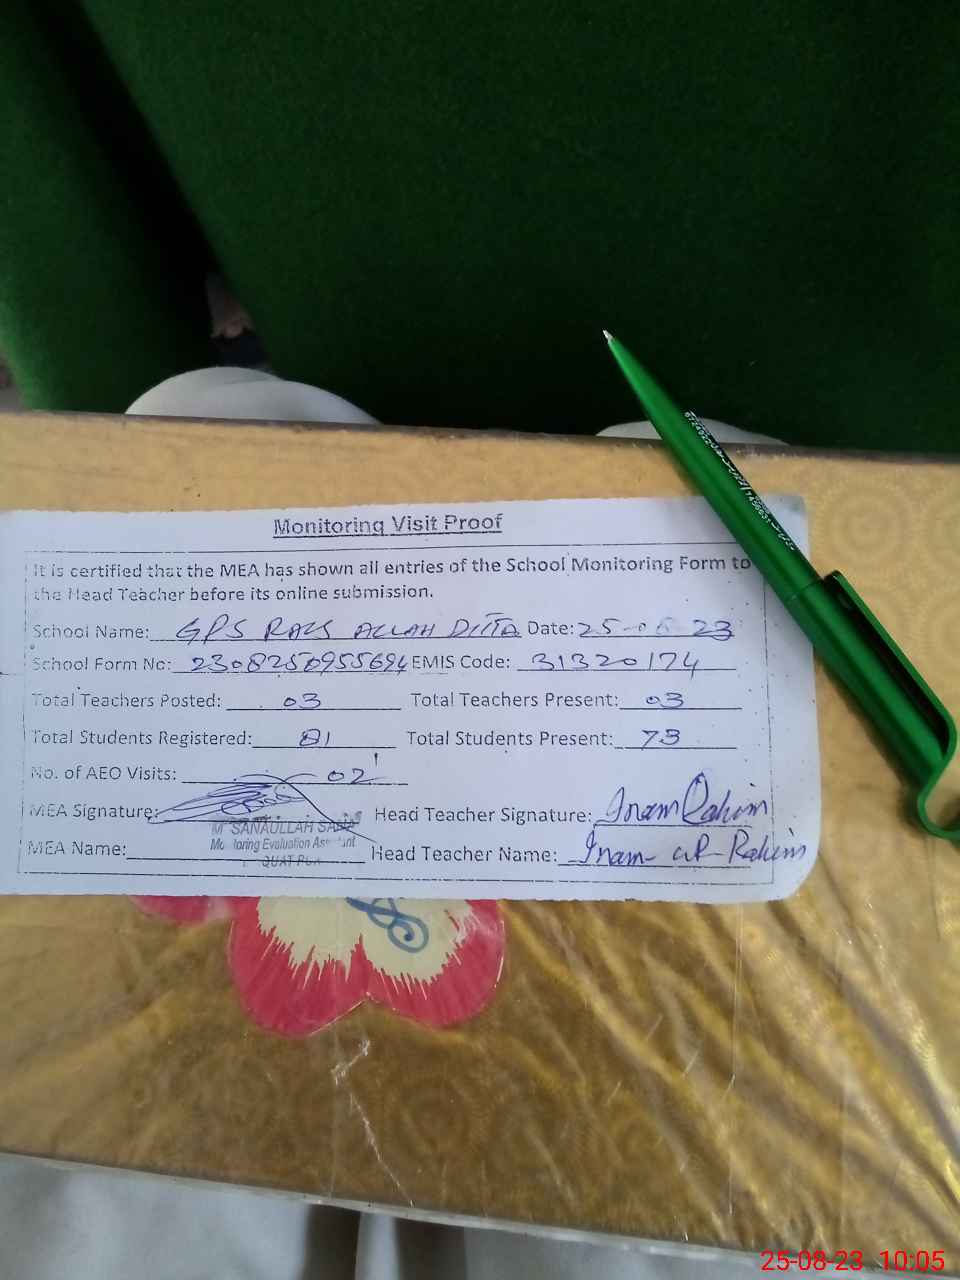 Monitoring Visit Proof
It is certified that the MEA has shown all entries of the School Monitoring Form to
the Head Teacher before its online submission.
School Name: GPS RAIS ALLAH DITTA Date: 25-08-23
School Form No: 2308250955694 EMIS Code: 31320174
Total Teachers Posted: 03 Total Teachers Present: 03
Total Students Registered: 81 Total Students Present: 73
No. of AEO Visits: 02
MEA Signature: Head Teacher Signature: Inam Rahim
M SANAULLAH
Monitoring Evaluation Assistant
MEA Name: Head Teacher Name: Inam-ur-Rahim
25-08-23 10:05